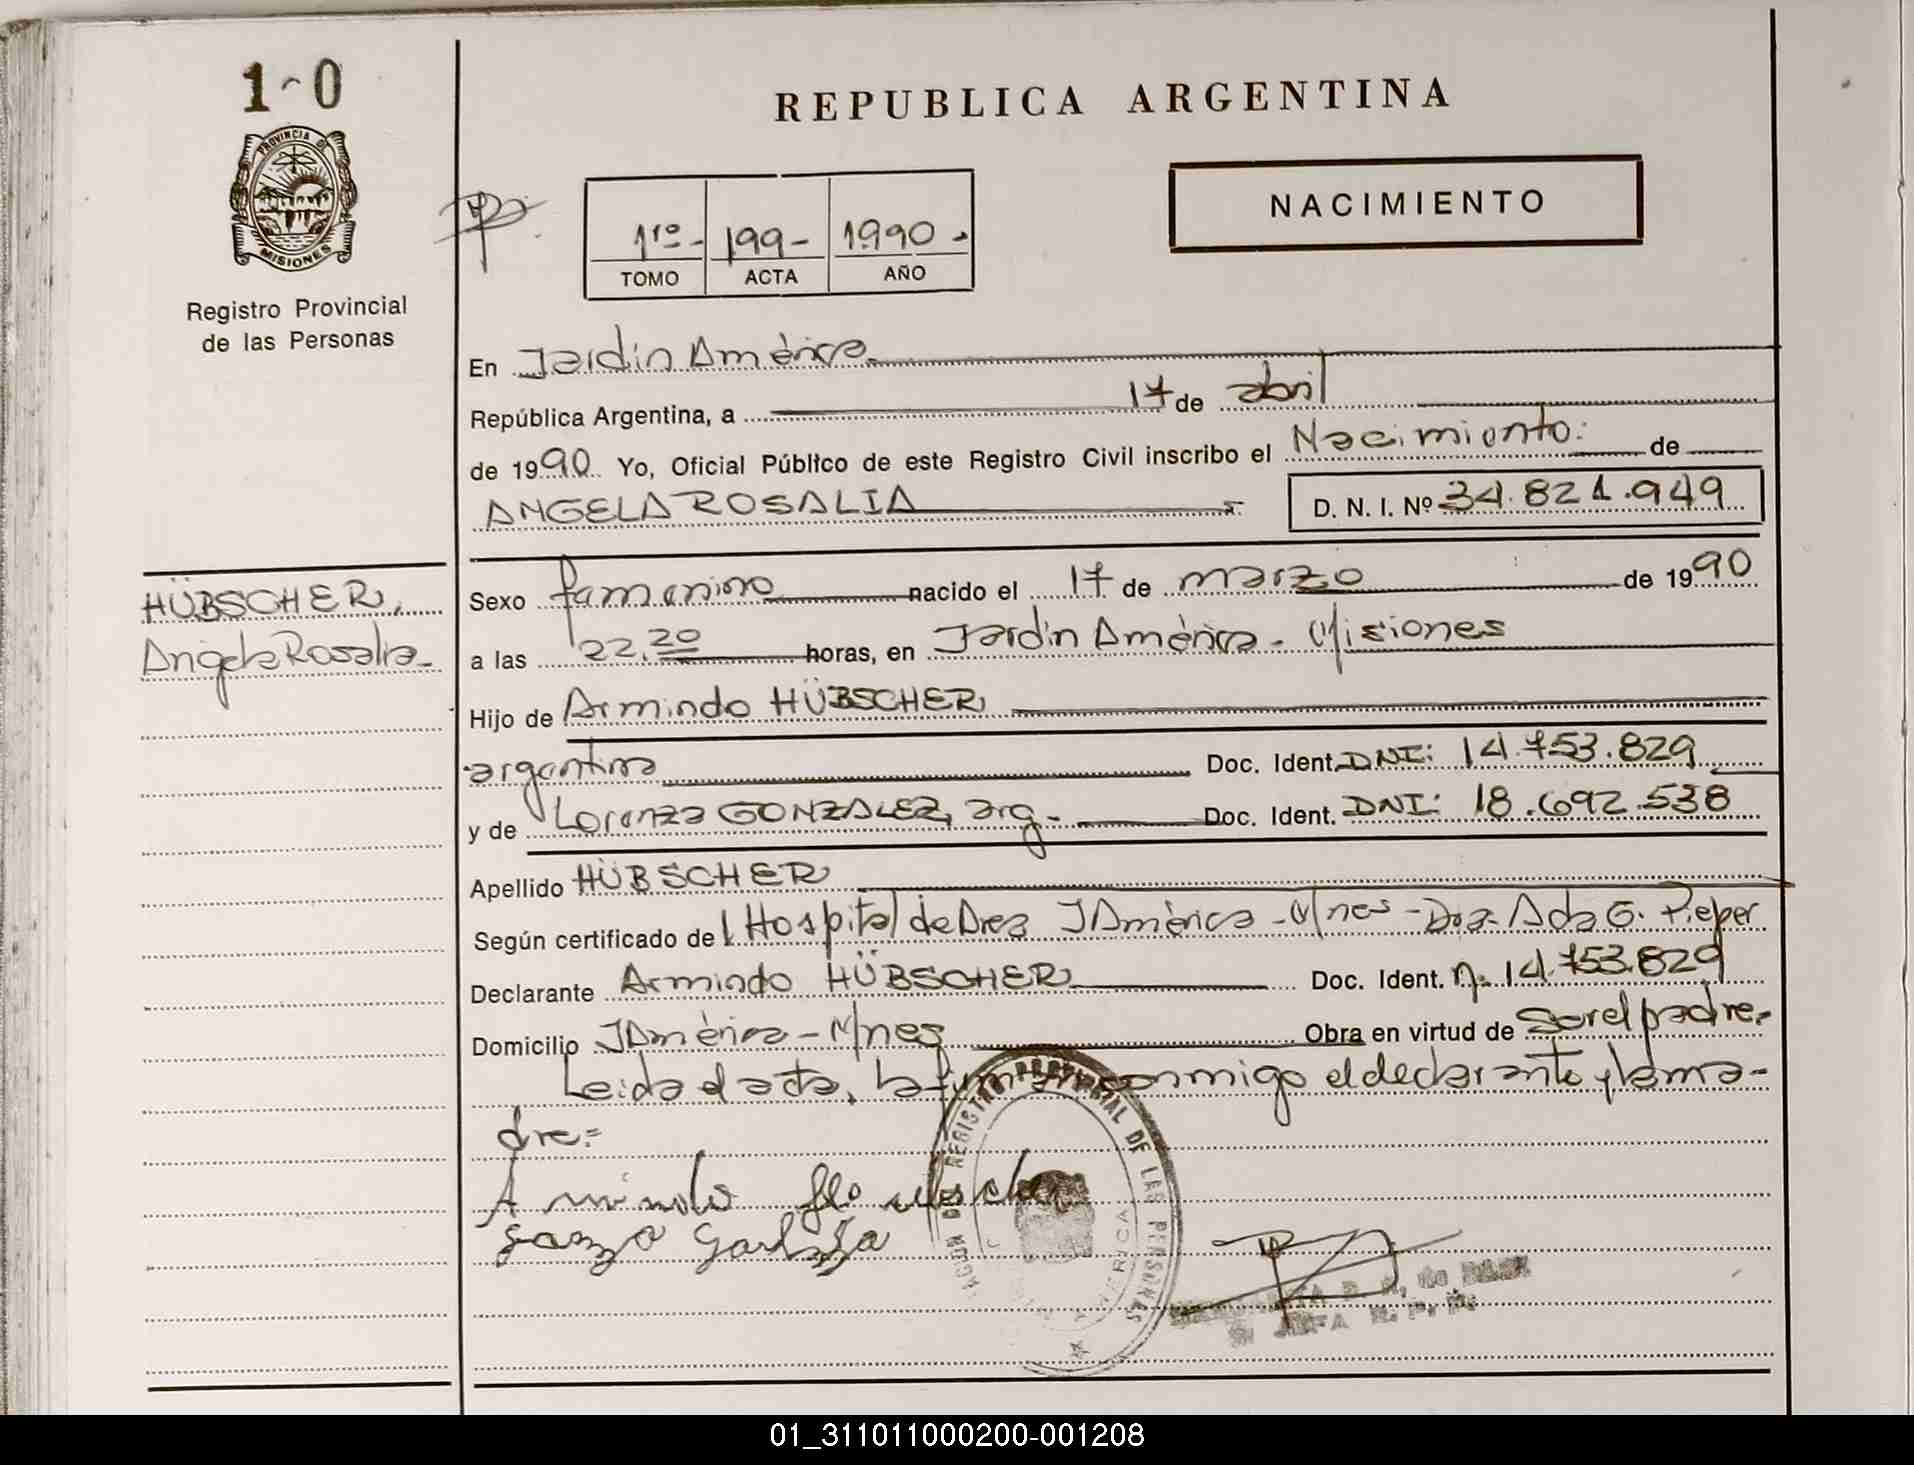 1-0
PROVINCIA DE
MISIONES
Registro Provincial
de las Personas
REPUBLICA ARGENTINA
NACIMIENTO
1ro- 199- 1990.
TOMO ACTA AÑO
En Jardín América.
República Argentina, a 17 de abril
de 1990. Yo, Oficial Público de este Registro Civil inscribo el Nacimiento: de
ANGELA ROSALIA D. N. I. Nº 34.821.949
HÜBSCHER,
Angela Rosalia-
Sexo femenino nacido el 17 de marzo de 1990
a las 22.20 horas, en Jardín América - Misiones
Hijo de Armindo HÜBSCHER
argentina Doc. Ident. DNI: 14.753.829
y de Lorenza GONZALEZ, arg. Doc. Ident. DNI: 18.692.538
Apellido HÜBSCHER
Según certificado del Hospital de Area J América - M/nes - Dra. Ada G. Pieper
Declarante Armindo HÜBSCHER Doc. Ident. n. 14.753.829
Domicilio J América - M/nes Obra en virtud de Ser el padre.
Leida el acta, la firman conmigo el declarante y la ma-
dre:=
REGISTRO PROVINCIAL DE LAS PERSONAS
AMERICA
01_311011000200-001208